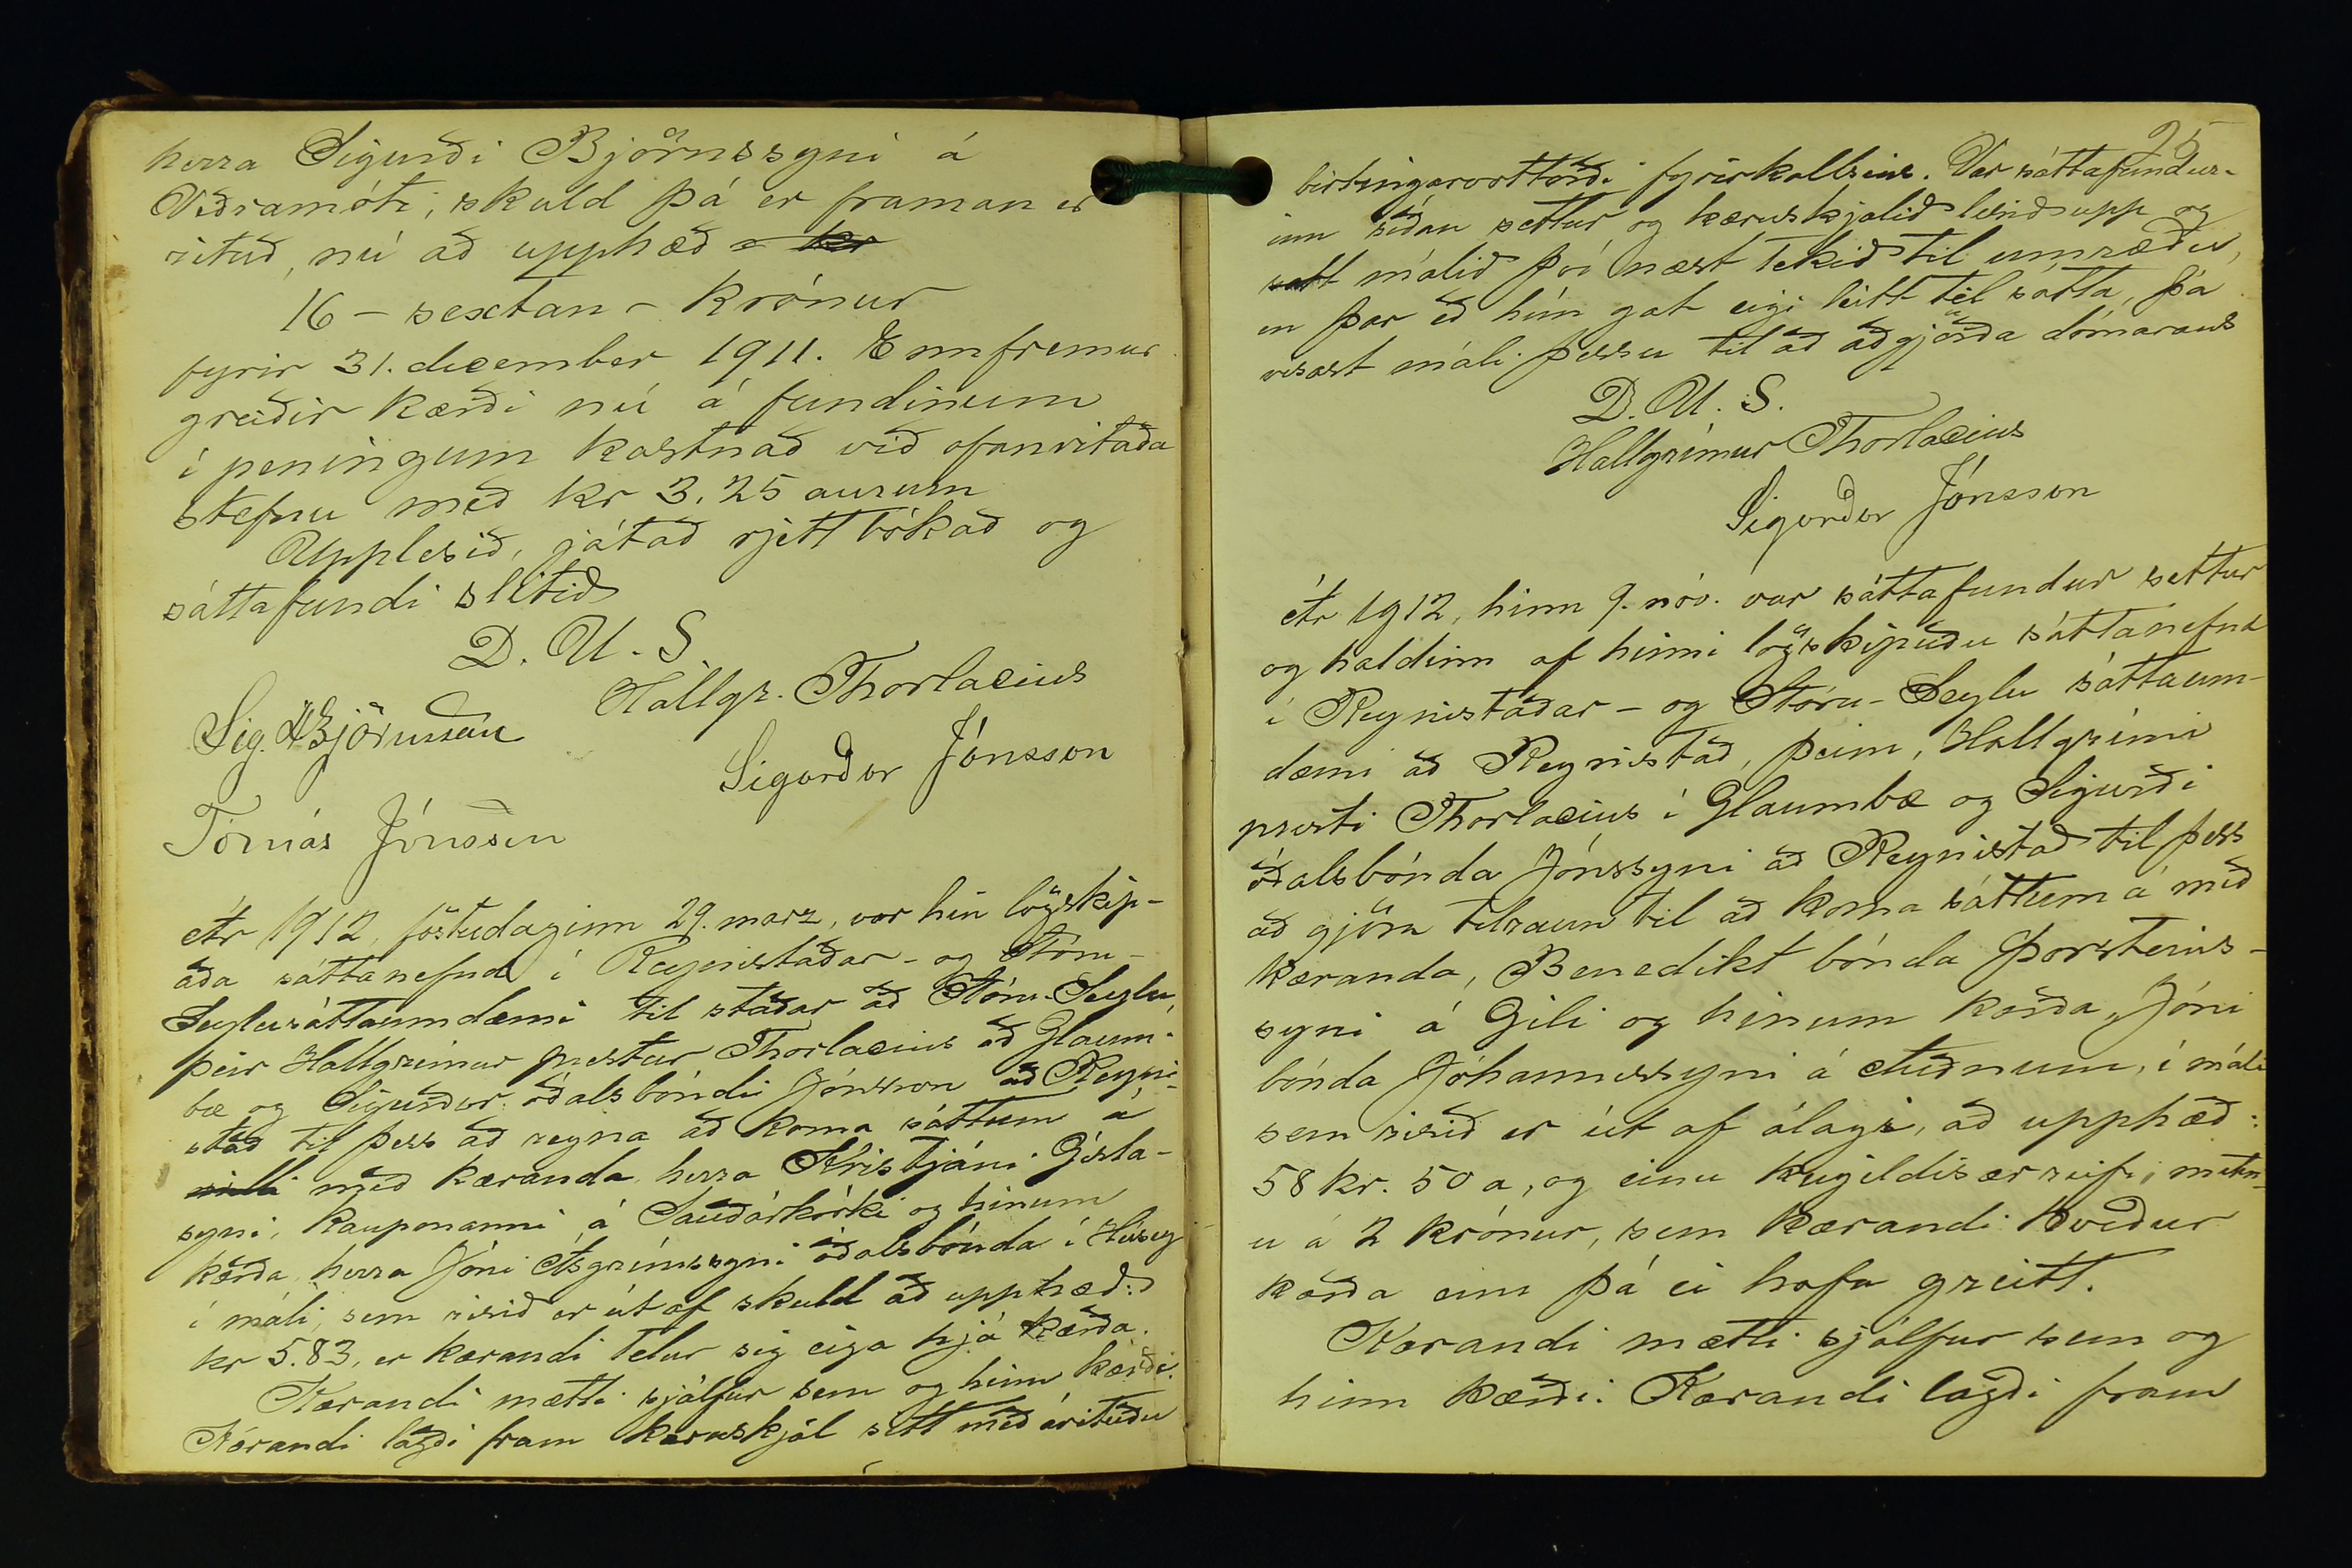 herra Sigurði Björnssyni á
Viðramóti, skuld þá er framan er
rituð, nú að upphæð a kr
16 - sextan - krónur
fyrir 31. december 1911. Ennfremur
greiðir kærði nú á fundinum
í peningum kostnað við ofanritaða
stefnu með kr 3.25 aurum
Upplesið, játað rjett bókað og
sáttafundi slitið
D. U. S.
Hallgr. Thorlacius
Sig. Björnsson
Sigurður Jónsson
Tómás Jónsson
Ár 1912, föstudaginn 29. marz, var hin lögskip-
aða sáttanefnd í Reynistaðar- og Stóru-
Seylusáttaumdæmi til staðar að Stóru-Seylu,
þeir Hallgrímur prestur Thorlacius að Glaum-
bæ og Sigurður óðalsbóndi Jónsson að Reyni-
stað til þess að reyna að koma sáttum á
milli með kæranda, herra Kristjáni Gísla-
syni, kaupmanni á Sauðárkróki og hinum
kærða, herra Jóni Ásgrímssyni óðalsbónda í Húsey
í máli, sem risið er út af skuld að upphæð:
kr 5.83, er kærandi telur sig eiga hjá kærða.
Kærandi mætti sjálfur sem og hinn kærði.
Kærandi lagði fram kæruskjal sitt með árituðu
25
birtingarvottorði fyrirkallsins. Var sáttafundur-
inn síðan settur og kæruskjalið lesið upp og
satt málið því næst tekið til umræðu,
en þar eð hún gat eigi leitt til sátta, þá
vísast máli þessu til að aðgjörða dómarans
D. U. S.
Hallgrímur Thorlacius
Sigurður Jónsson
Ár 1912, hinn 9. nóv. var sáttafundur settur
og haldinn af hinni lögskipuðu sáttanefnd
í Reynistaðar- og Stóru-Seylu sáttaum-
dæmi að Reynistað, þeim, Hallgrími
presti Thorlacius í Glaumbæ og Sigurði
óðalsbónda Jónssyni að Reynistað til þess
að gjöra tilraun til að koma sáttum á með
kæranda, Benedikt bónda Þorsteins-
syni á Gili og hinum kærða, Jóni
bónda Jóhannessyni á Auðnum, í máli
sem risið er út af álagi, að upphæð:
58 kr. 50 a, og einu kúgildisærreifi, metn-
u á 2 krónur, sem kærandi kveður
kærða enn þá ei hafa greitt.
Kærandi mætti sjálfur sem og
hinn kærði. Kærandi lagði fram